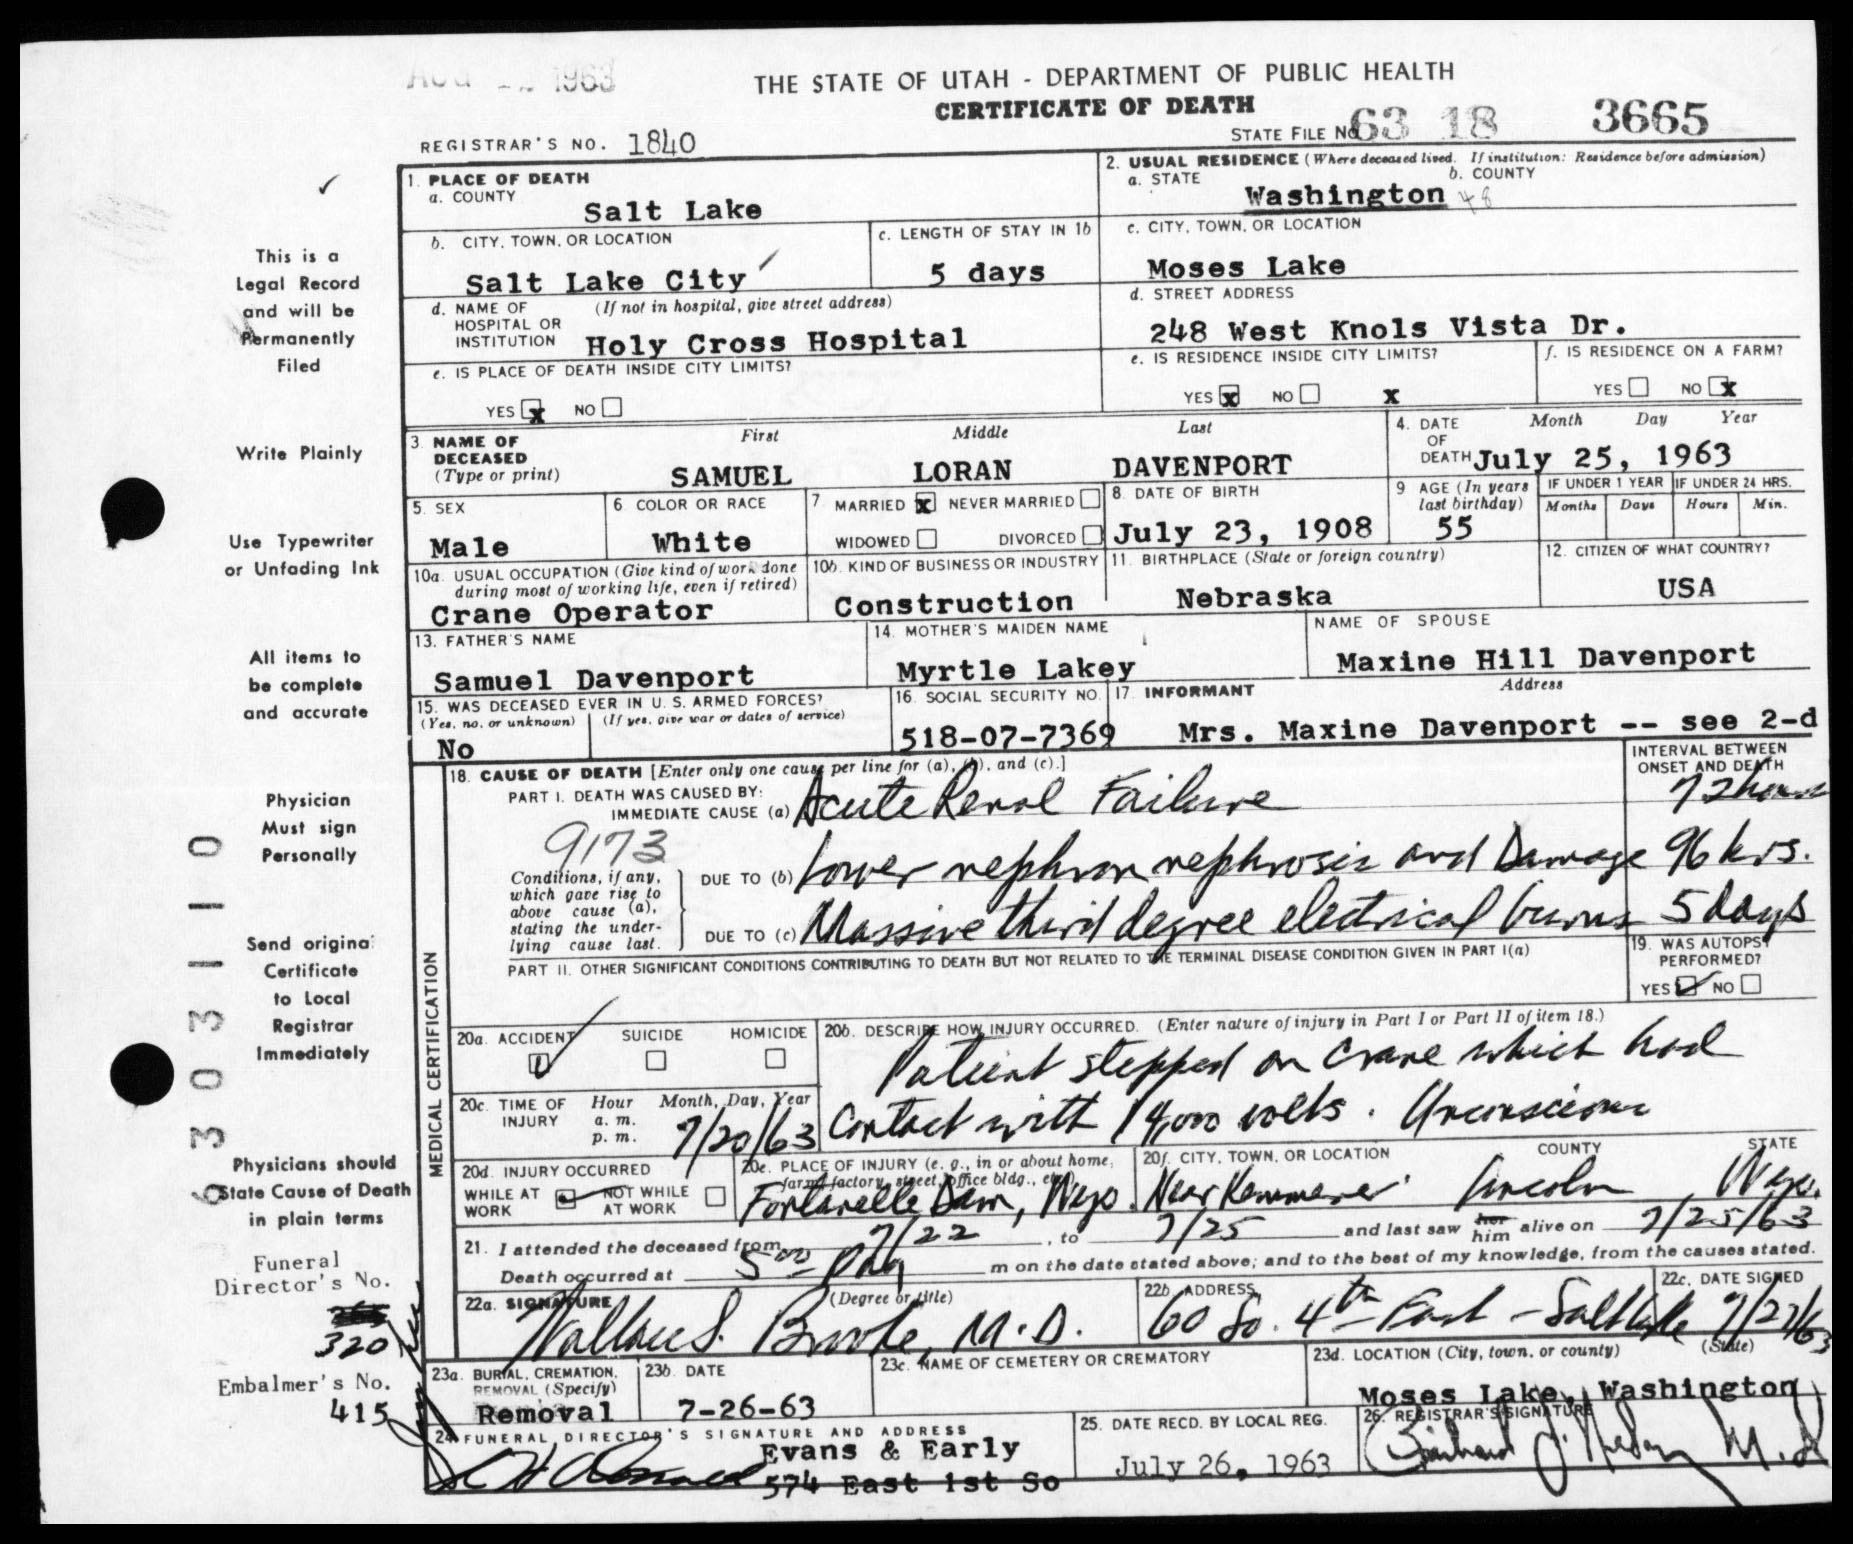 AUG 1963
THE STATE OF UTAH - DEPARTMENT OF PUBLIC HEALTH
CERTIFICATE OF DEATH
STATE FILE NO. 63 18 3665
REGISTRAR'S NO. 1840
This is a
Legal Record
and will be
Permanently
Filed
Write Plainly
Use Typewriter
or Unfading Ink
All items to
be complete
and accurate
Physician
Must sign
Personally
Send original
Certificate
to Local
Registrar
Immediately
Physicians should
State Cause of Death
in plain terms
Funeral
Director's No.
320
Embalmer's No.
415
6303110
1. PLACE OF DEATH
a. COUNTY
Salt Lake
2. USUAL RESIDENCE (Where deceased lived. If institution: Residence before admission)
a. STATE b. COUNTY
Washington 48
b. CITY, TOWN, OR LOCATION
Salt Lake City
c. LENGTH OF STAY IN 1b
5 days
c. CITY, TOWN, OR LOCATION
Moses Lake
d. NAME OF HOSPITAL OR INSTITUTION (If not in hospital, give street address)
Holy Cross Hospital
d. STREET ADDRESS
248 West Knols Vista Dr.
e. IS PLACE OF DEATH INSIDE CITY LIMITS?
YES x NO
e. IS RESIDENCE INSIDE CITY LIMITS?
YES x NO x
f. IS RESIDENCE ON A FARM?
YES NO x
3. NAME OF DECEASED (Type or print)
First Middle Last
SAMUEL LORAN DAVENPORT
4. DATE OF DEATH Month Day Year
July 25, 1963
5. SEX
Male
6. COLOR OR RACE
White
7. MARRIED x NEVER MARRIED
WIDOWED DIVORCED
8. DATE OF BIRTH
July 23, 1908
9 AGE (In years last birthday)
55
IF UNDER 1 YEAR IF UNDER 24 HRS.
Months Days Hours Min.
10a. USUAL OCCUPATION (Give kind of work done during most of working life, even if retired)
Crane Operator
10b. KIND OF BUSINESS OR INDUSTRY
Construction
11. BIRTHPLACE (State or foreign country)
Nebraska
12. CITIZEN OF WHAT COUNTRY?
USA
13. FATHER'S NAME
Samuel Davenport
14. MOTHER'S MAIDEN NAME
Myrtle Lakey
NAME OF SPOUSE
Maxine Hill Davenport
15. WAS DECEASED EVER IN U. S. ARMED FORCES?
(Yes, no, or unknown) (If yes, give war or dates of service)
No
16. SOCIAL SECURITY NO.
518-07-7369
17. INFORMANT Address
Mrs. Maxine Davenport -- see 2-d
MEDICAL CERTIFICATION
18. CAUSE OF DEATH [Enter only one cause per line for (a), (b), and (c).]
INTERVAL BETWEEN ONSET AND DEATH
PART I. DEATH WAS CAUSED BY:
IMMEDIATE CAUSE (a) Acute Renal Failure 72 hours
9173
Conditions, if any, which gave rise to above cause (a), stating the underlying cause last.
DUE TO (b) Lower nephron nephrosis and Damage 96 hrs.
DUE TO (c) Massive third degree electrical burns 5 days
PART II. OTHER SIGNIFICANT CONDITIONS CONTRIBUTING TO DEATH BUT NOT RELATED TO THE TERMINAL DISEASE CONDITION GIVEN IN PART I(a)
19. WAS AUTOPSY PERFORMED?
YES NO
20a. ACCIDENT SUICIDE HOMICIDE
20b. DESCRIBE HOW INJURY OCCURRED. (Enter nature of injury in Part I or Part II of item 18.)
Patient stepped on crane which had
contact with 14,000 volts. Unconscious
20c. TIME OF INJURY Hour a. m. p. m. Month, Day, Year
7/20/63
20d. INJURY OCCURRED
WHILE AT WORK NOT WHILE AT WORK
20e. PLACE OF INJURY (e. g., in or about home, farm, factory, street, office bldg., etc.)
Fontanelle Dam, Wyo.
20f. CITY, TOWN, OR LOCATION COUNTY STATE
Near Kemmerer Lincoln, Wyo.
21. I attended the deceased from 7/22, to 7/25 and last saw her him alive on 7/25/63
Death occurred at 5 00 p m on the date stated above; and to the best of my knowledge, from the causes stated.
22a. SIGNATURE (Degree or title)
Wallace S. Brooke, M.D.
22b. ADDRESS
60 So. 4th East - Salt Lake
22c. DATE SIGNED
7/27/63
23a. BURIAL, CREMATION, REMOVAL (Specify)
Removal
23b. DATE
7-26-63
23c. NAME OF CEMETERY OR CREMATORY
23d. LOCATION (City, town, or county) (State)
Moses Lake, Washington
24. FUNERAL DIRECTOR'S SIGNATURE AND ADDRESS
Evans & Early
574 East 1st So
25. DATE RECD. BY LOCAL REG.
July 26, 1963
26. REGISTRAR'S SIGNATURE
M.D.